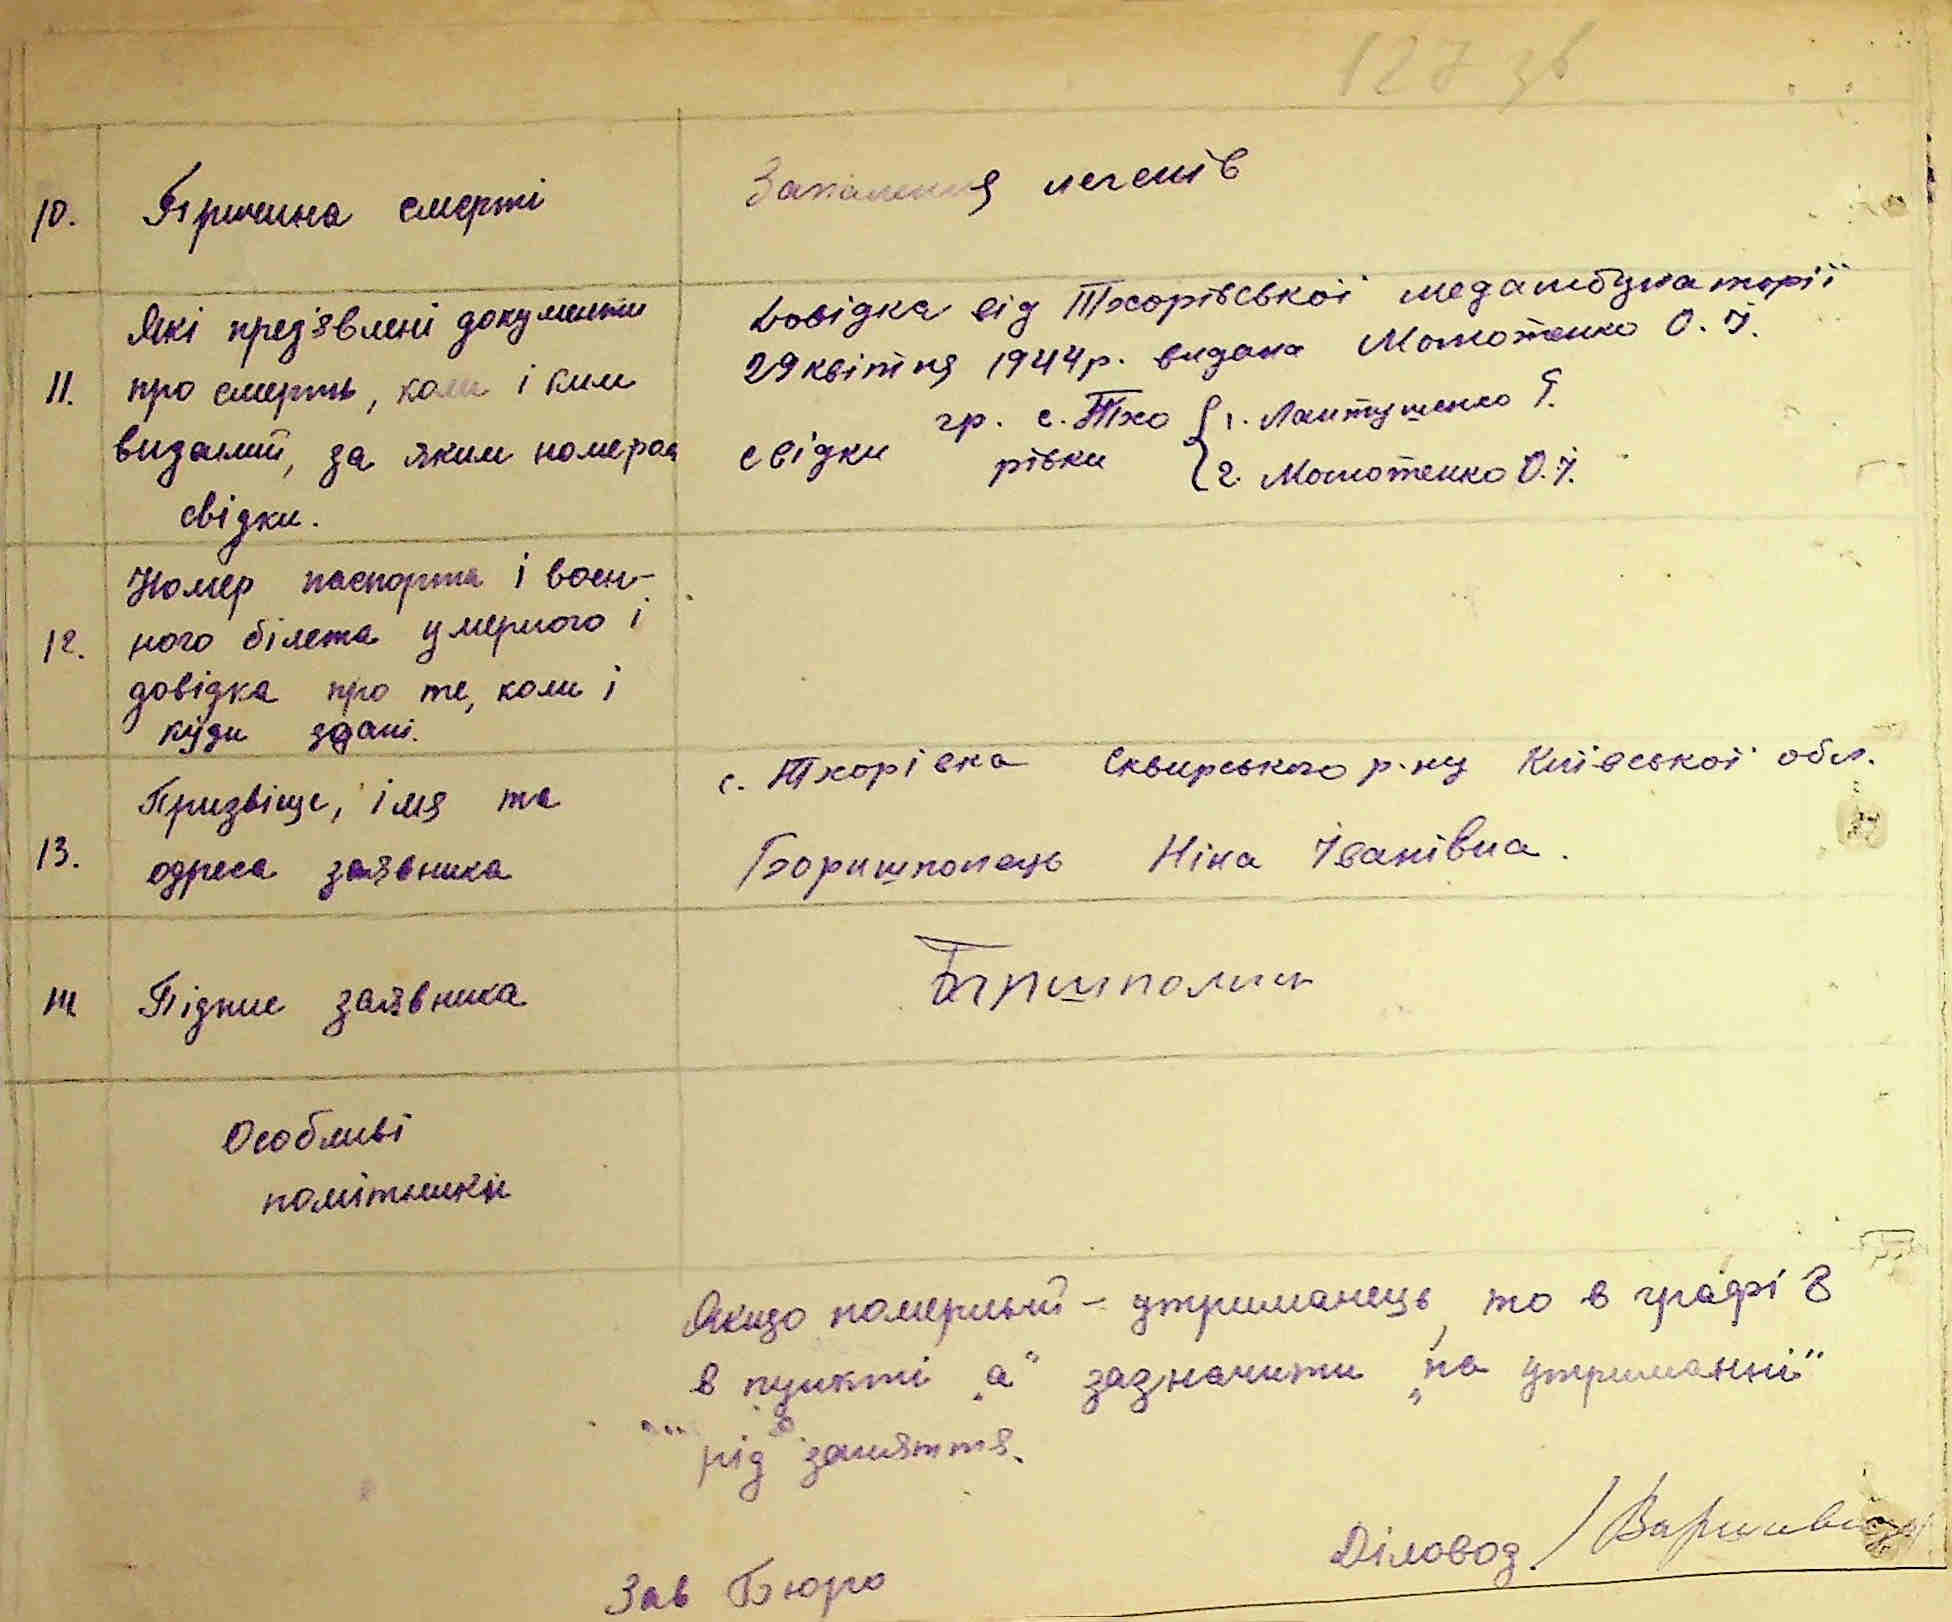 127 зв
10. Причина смерті
Запалення легенів
Які пред'явлені документи
11. про смерть, коли і ким
виданий, за яким номером
свідки.
Довідка від Тхорівської медамбулаторії
29 квітня 1944 р. видана Мототенко О. І.
гр. с. Тхо { 1. Лантушенко Я.
свідки рівки { 2. Мототенко О. І.
Номер паспорта і воєн-
12. ного білета умерлого і
довідка про те, коли і
куди здані.
Призвіще, імя та
13. адреса заявника
с. Тхорівка Сквирського р-ну Київської обл.
Боришполець Ніна Іванівна.
14 Підпис заявника
Особливі
помітники
Якщо померлий - утриманець, то в графі 8
в пункті „а" зазначити „на утриманні"
рід заняття.
Діловод /
Зав Бюро